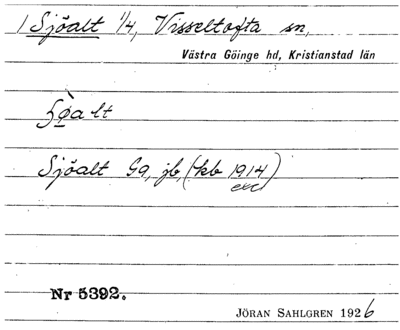 / Sjöalt 1/4, Visseltofta sn,
Västra Göinge hd, Kristianstad län
Sjöalt Ga, jb, (kb 1914)
Nr 5392.
JÖRAN SAHLGREN 1926